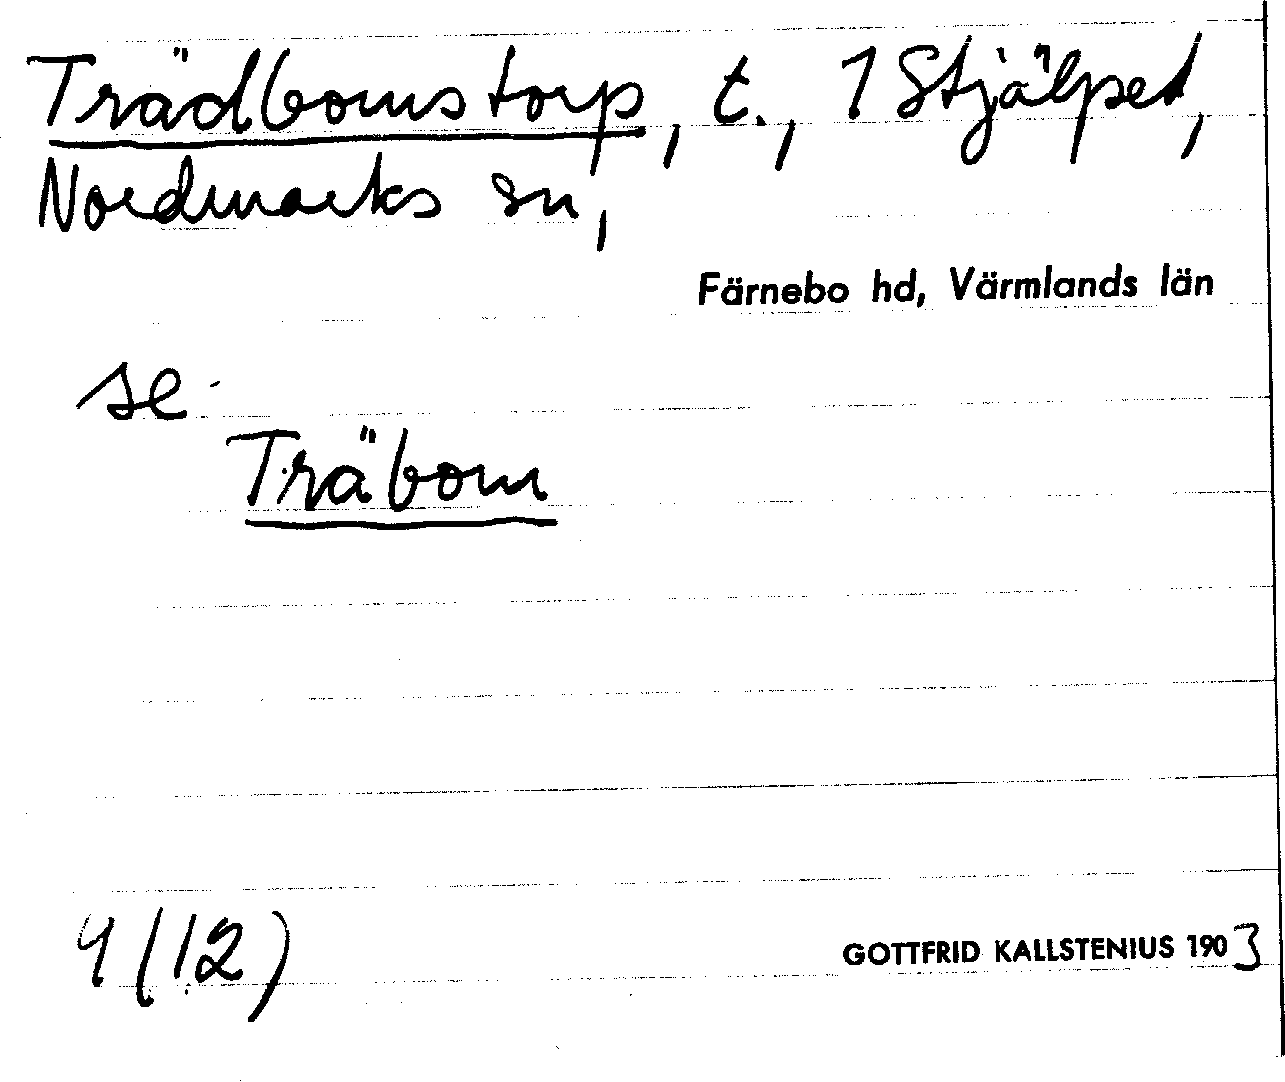 Trädbomstorp, t., 1 Stjälpet,
Nordmarks sn,
Färnebo hd, Värmlands län
se
Träbom
4 (12)
GOTTFRID KALLSTENIUS 1903